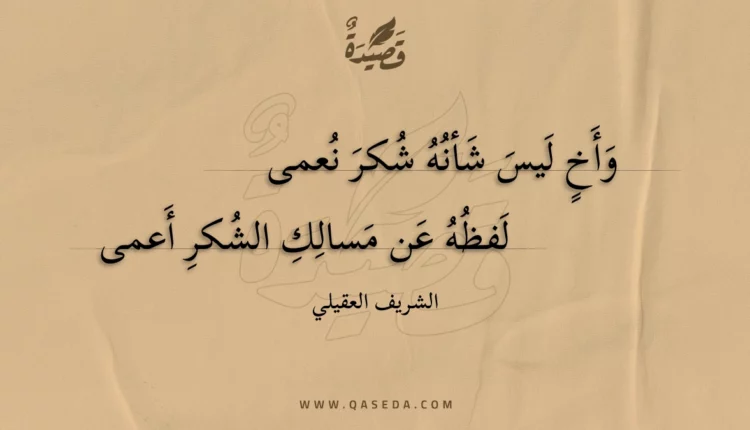 قَصِيْدَةٌ
وَأَخٍ لَيسَ شَأنُهُ شُكرَ نُعمى
لَفظُهُ عَن مَسالِكِ الشُكرِ أَعمى
الشريف العقيلي
WWW.QASEDA.COM